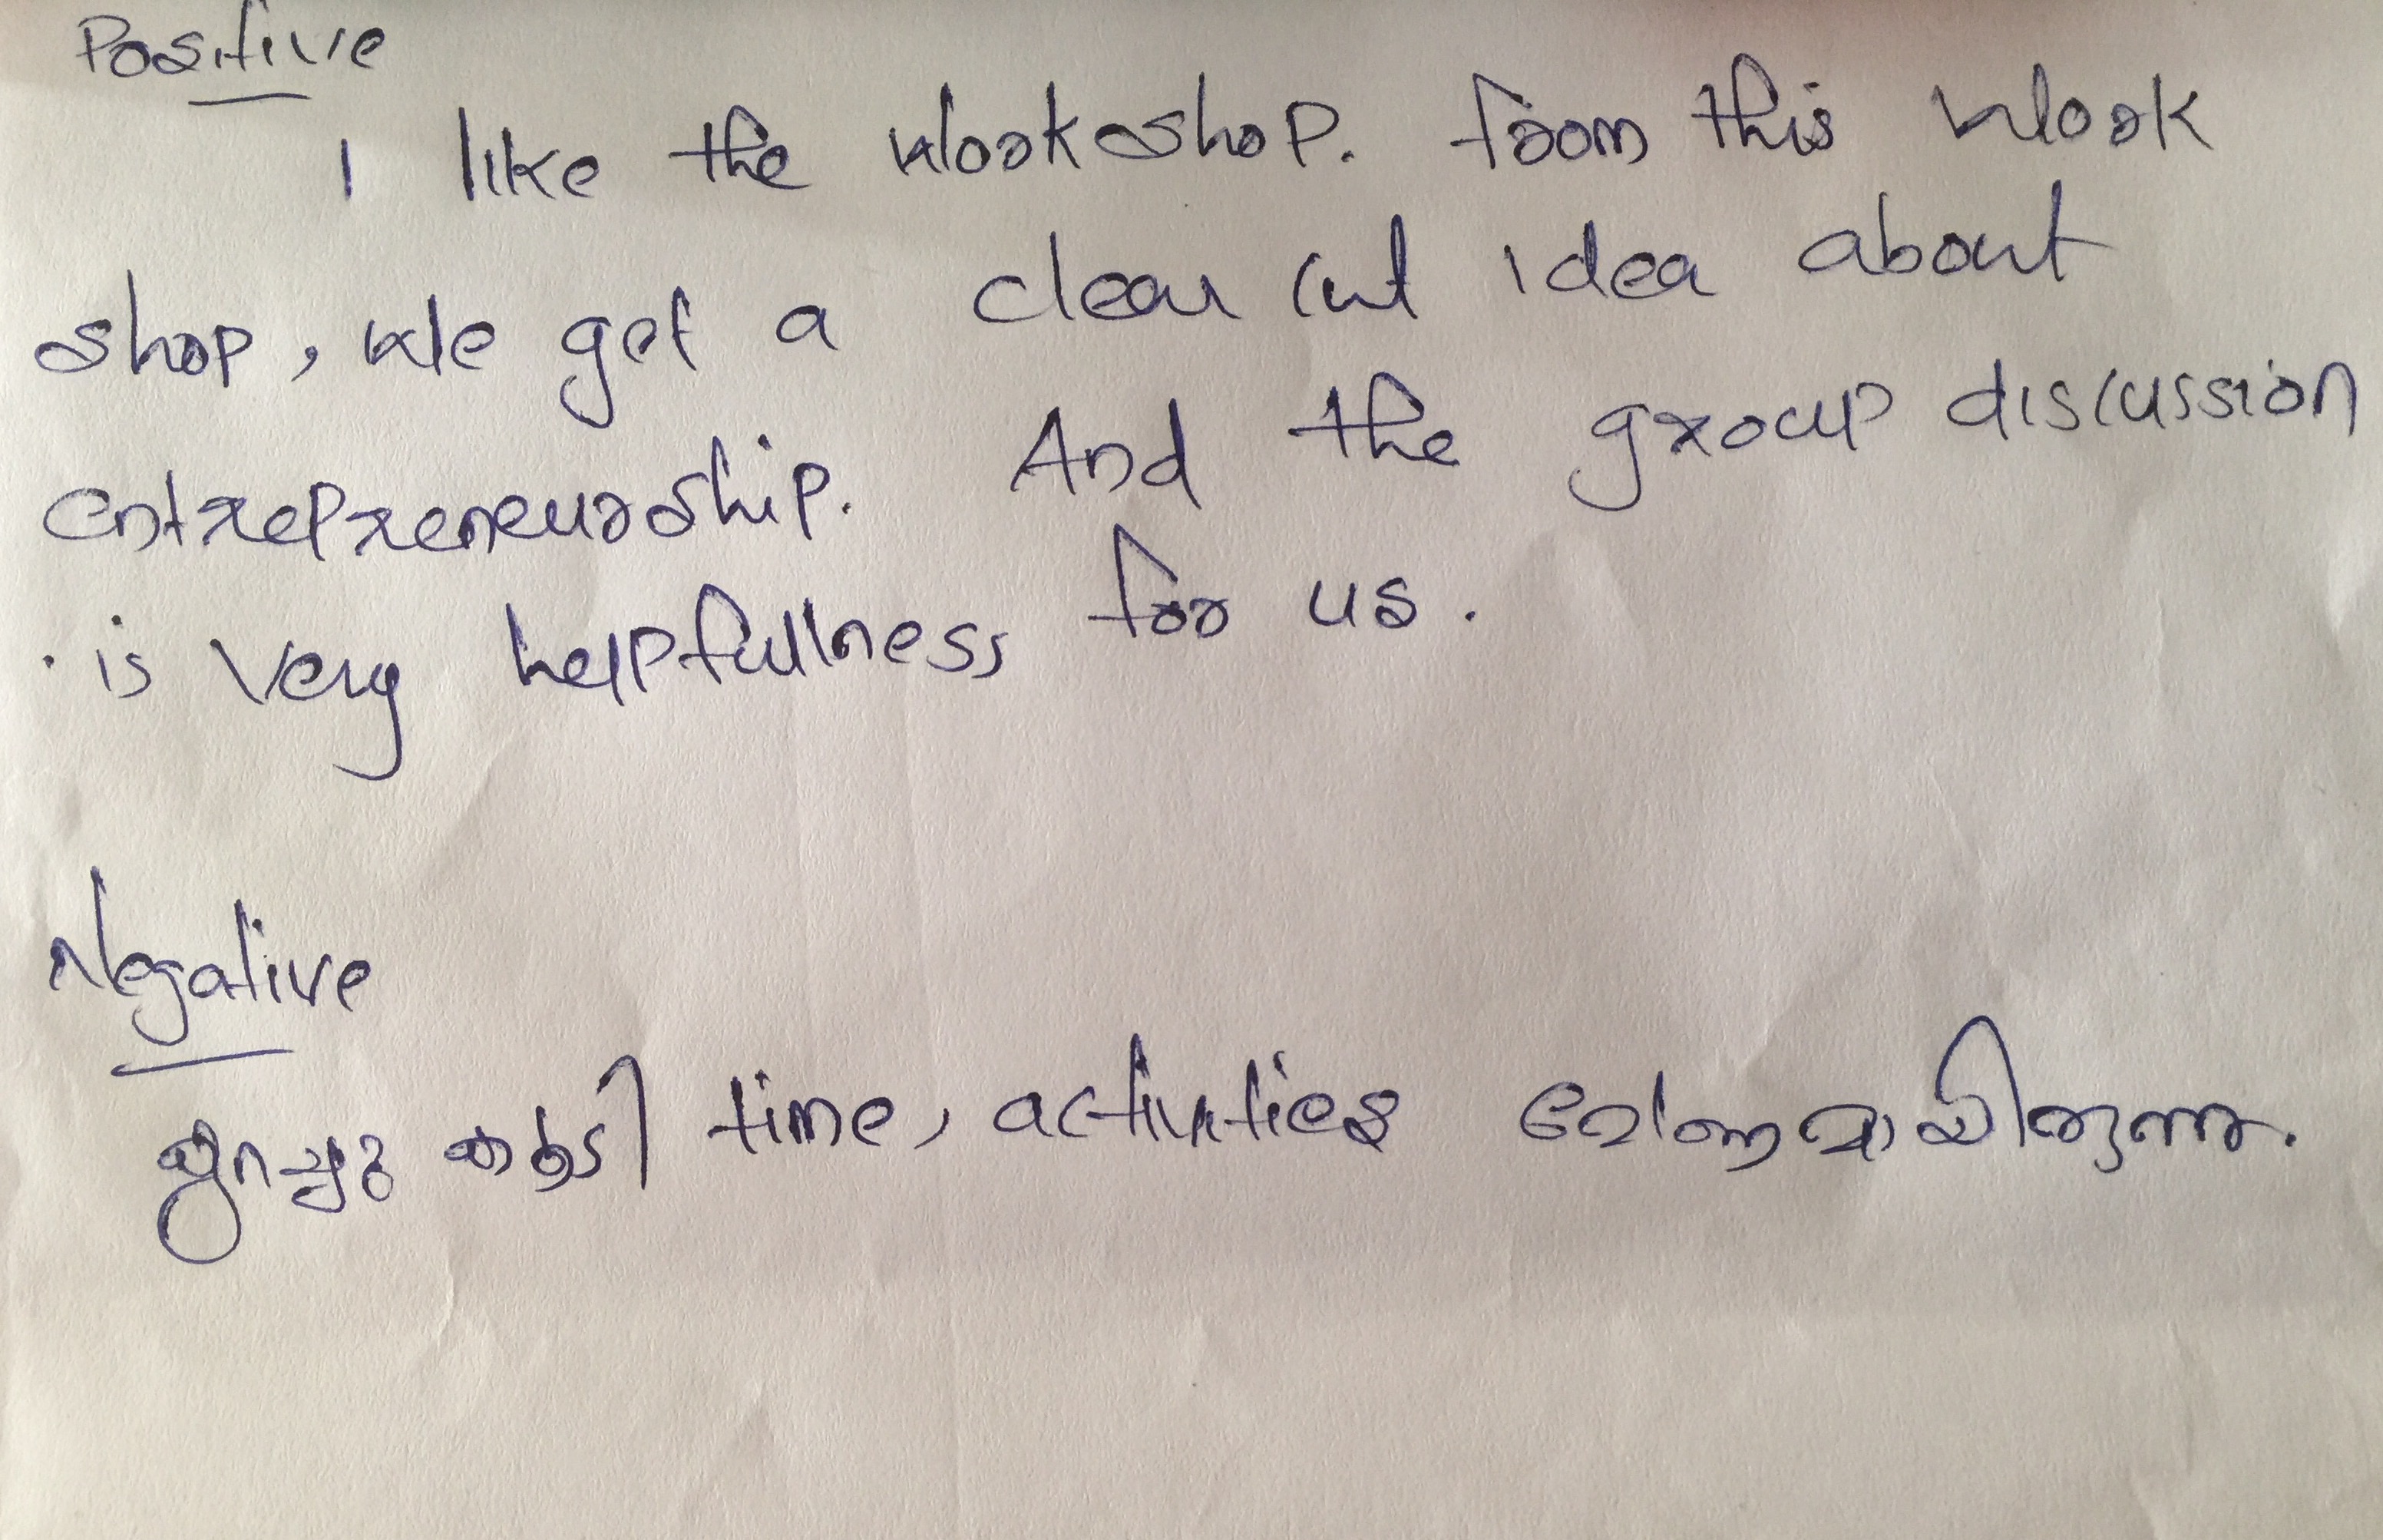 Positive
I like the workshop. from this work
shop, we get a clear cut idea about
entrepreneurship. And the group discussion
is very helpfullness for us.
Negative
കുറച്ചു കൂടി time, activities വേണമായിരുന്നു.